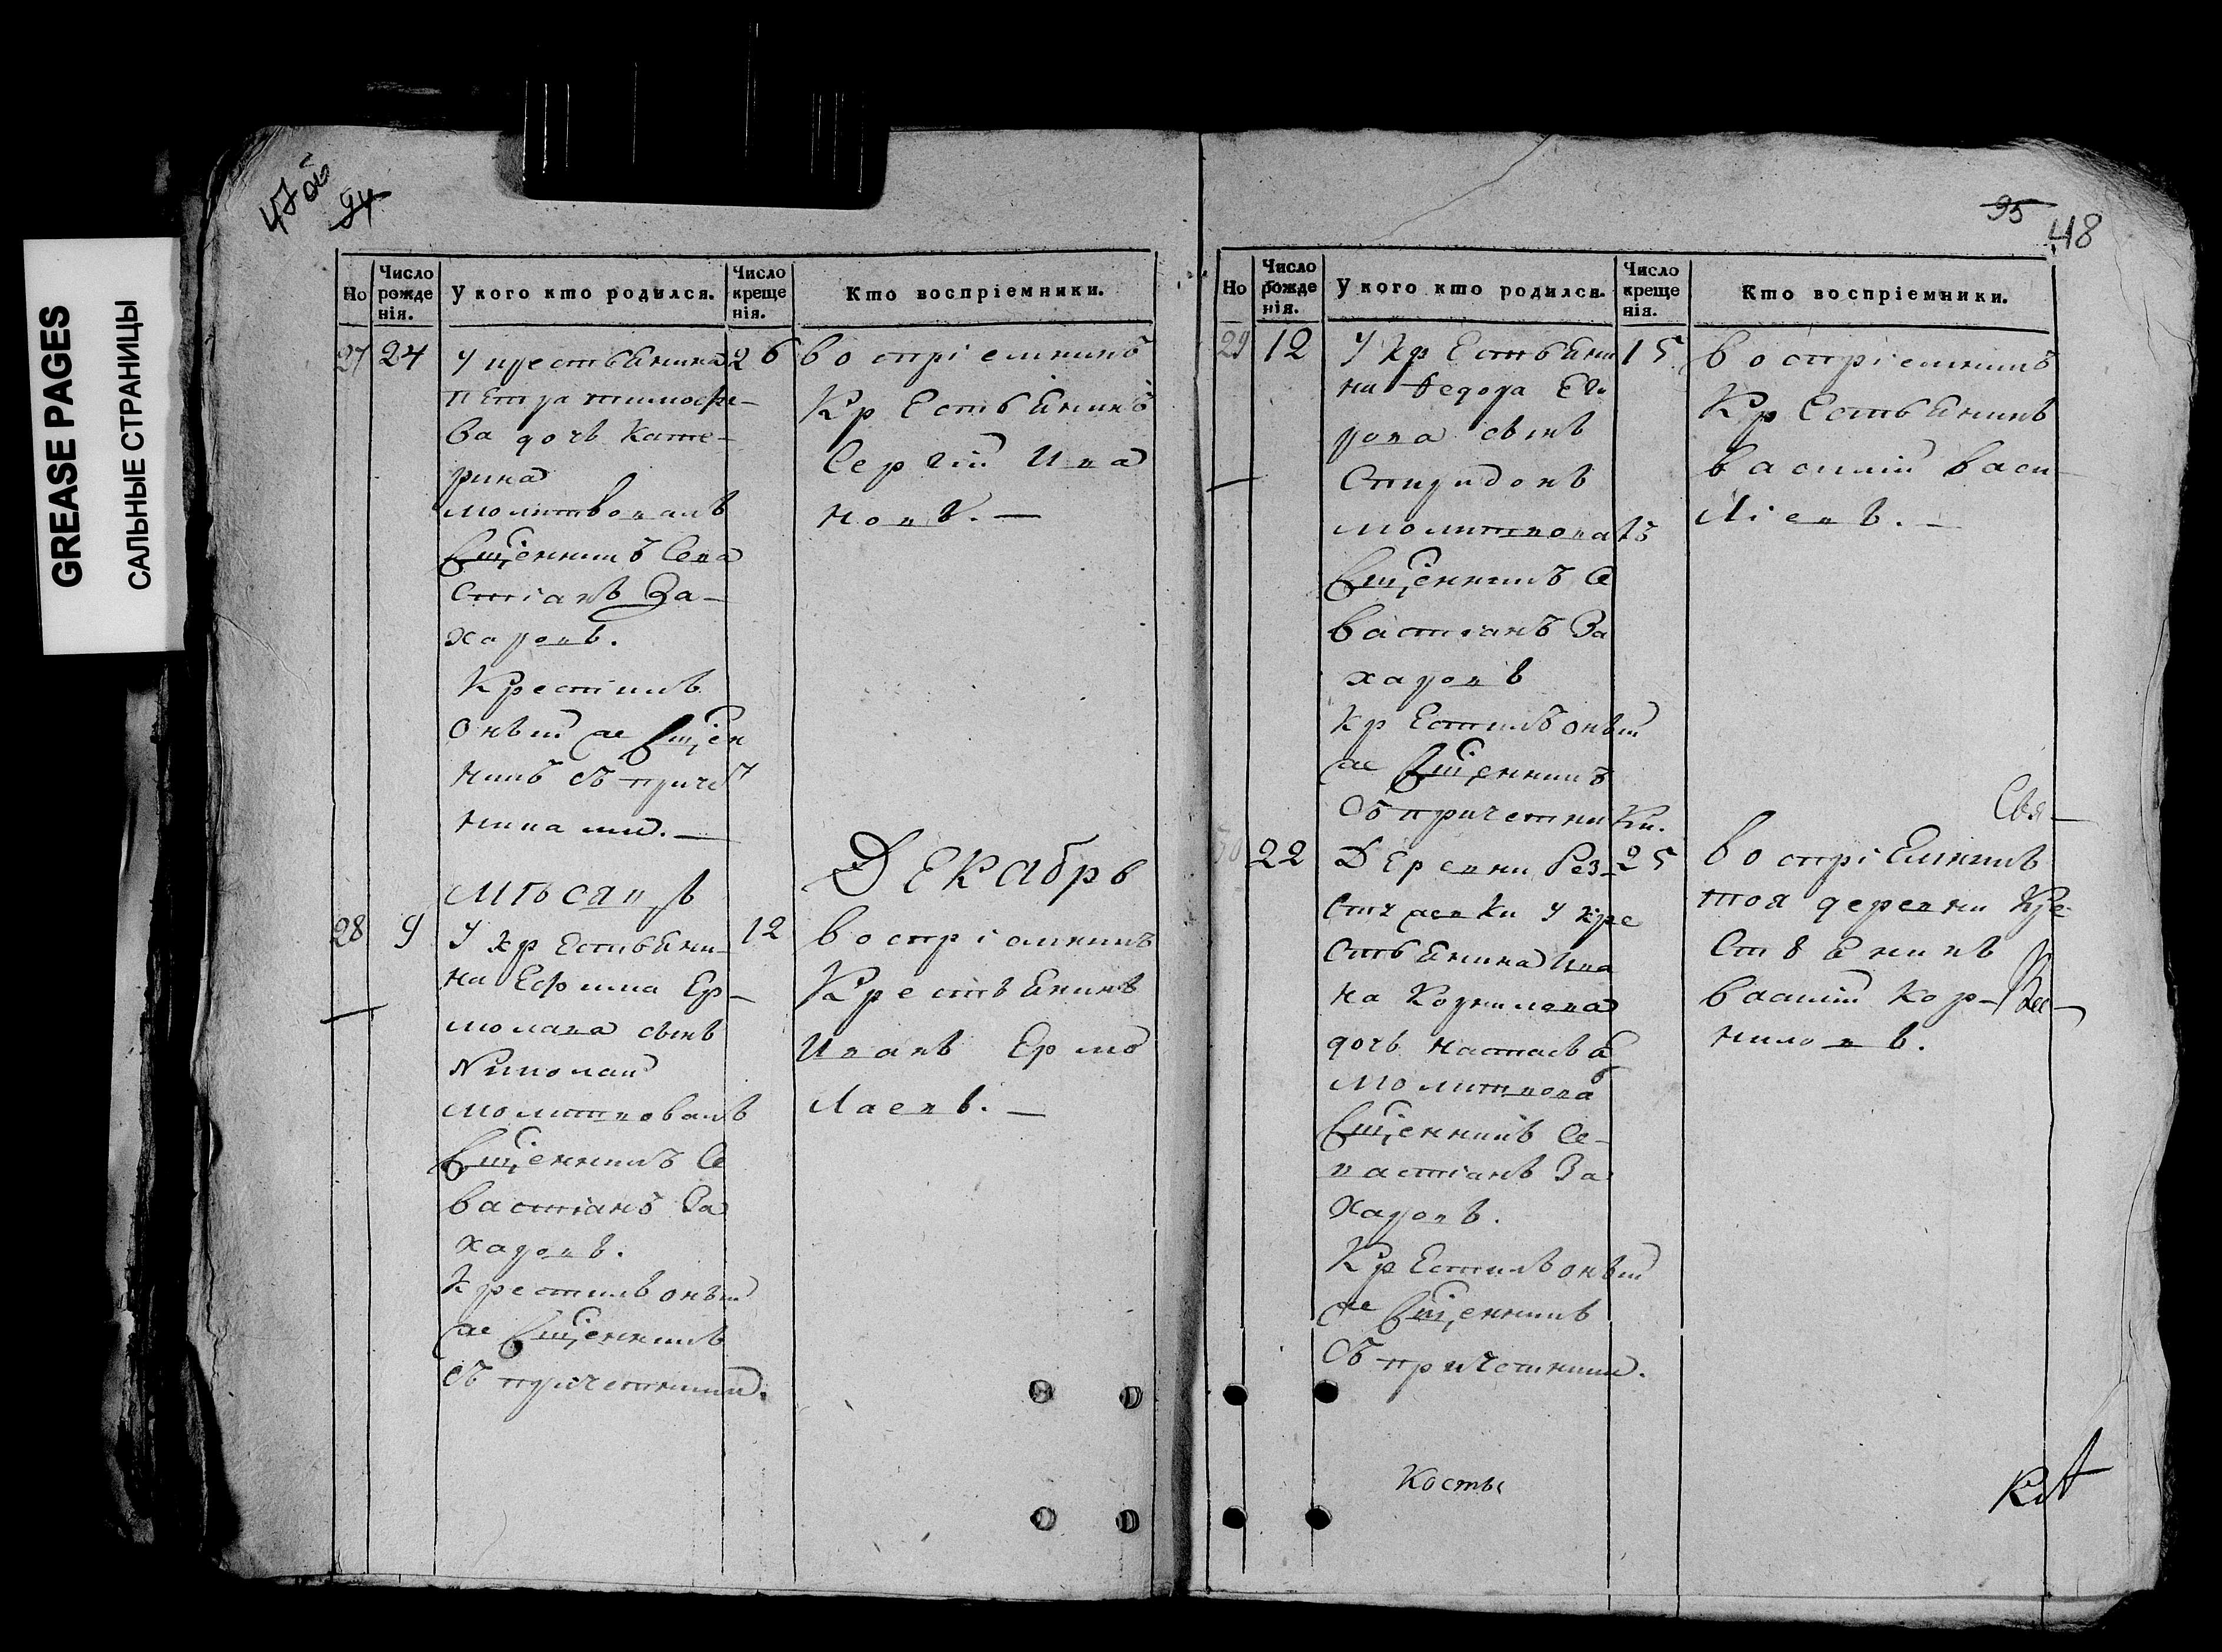 GREASE PAGES
САЛЬНЫЕ СТРАНИЦЫ
47 об
94
Но
Число рожденія.
У кого кто родился.
Число крещенія.
Кто воспріемники.
27 24 У крестьянина 26
Петра тимофе-
ва дочь Кате-
рина
молитвовалъ
Сщенникъ Сева
стіанъ За-
харовъ.
Крестилъ
оный же Сщен
никъ съ причет
никами. —
воспріемникъ
Крестьянинъ
Сергій Ива
новъ. —
Мѣсяцъ
Декабрь
28 9 У крестьяни- 12
на Ефима Ер-
молаева сынъ
Николай
молитвовалъ
Сщенникъ Се
вастіанъ За
харовъ.
Крестилъ оный
же Сщенникъ
съ причетники.
воспріемникъ
Крестьянинъ
Иванъ Ермо
лаевъ. —
95
48
Но
Число рожденія.
У кого кто родился.
Число крещенія.
Кто воспріемники.
29 12 У крестьяни 15
на Федора Его
рова сынъ
Спиридонъ
молитвовалъ
Сщенникъ Се
вастіанъ За
харовъ
крестилъ оный
же Сщенникъ
съ причетники.
воспріемникъ
Крестьянинъ
василій васи
ліевъ. —
Свя-
30 22 Деревни 25
У кре
стьянина Ива
на Корнилова
дочь настасья
молитвова
Сщенникъ Се-
вастіанъ За
харовъ.
Крестилъ оный
же Сщенникъ
съ причетники.
воспріемникъ
тоя деревни Кре
стьянинъ
василій Кор-
ниловъ.
Косты